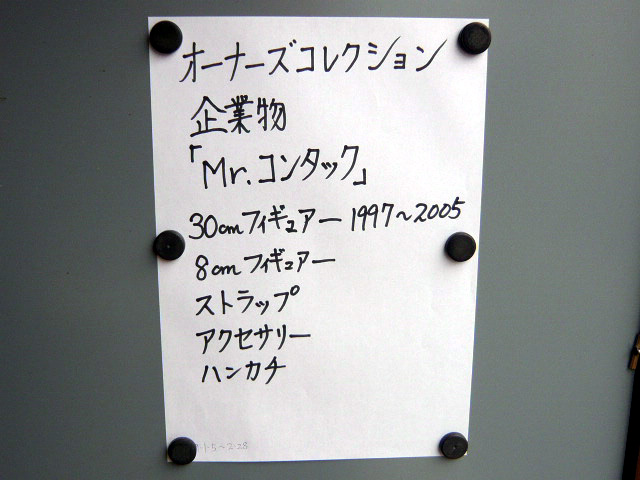 オーナーズコレクション
企業物
「Mr.コンタック」
30cmフィギュアー 1997〜2005
8cmフィギュアー
ストラップ
アクセサリー
ハンカチ
1-5〜2-28